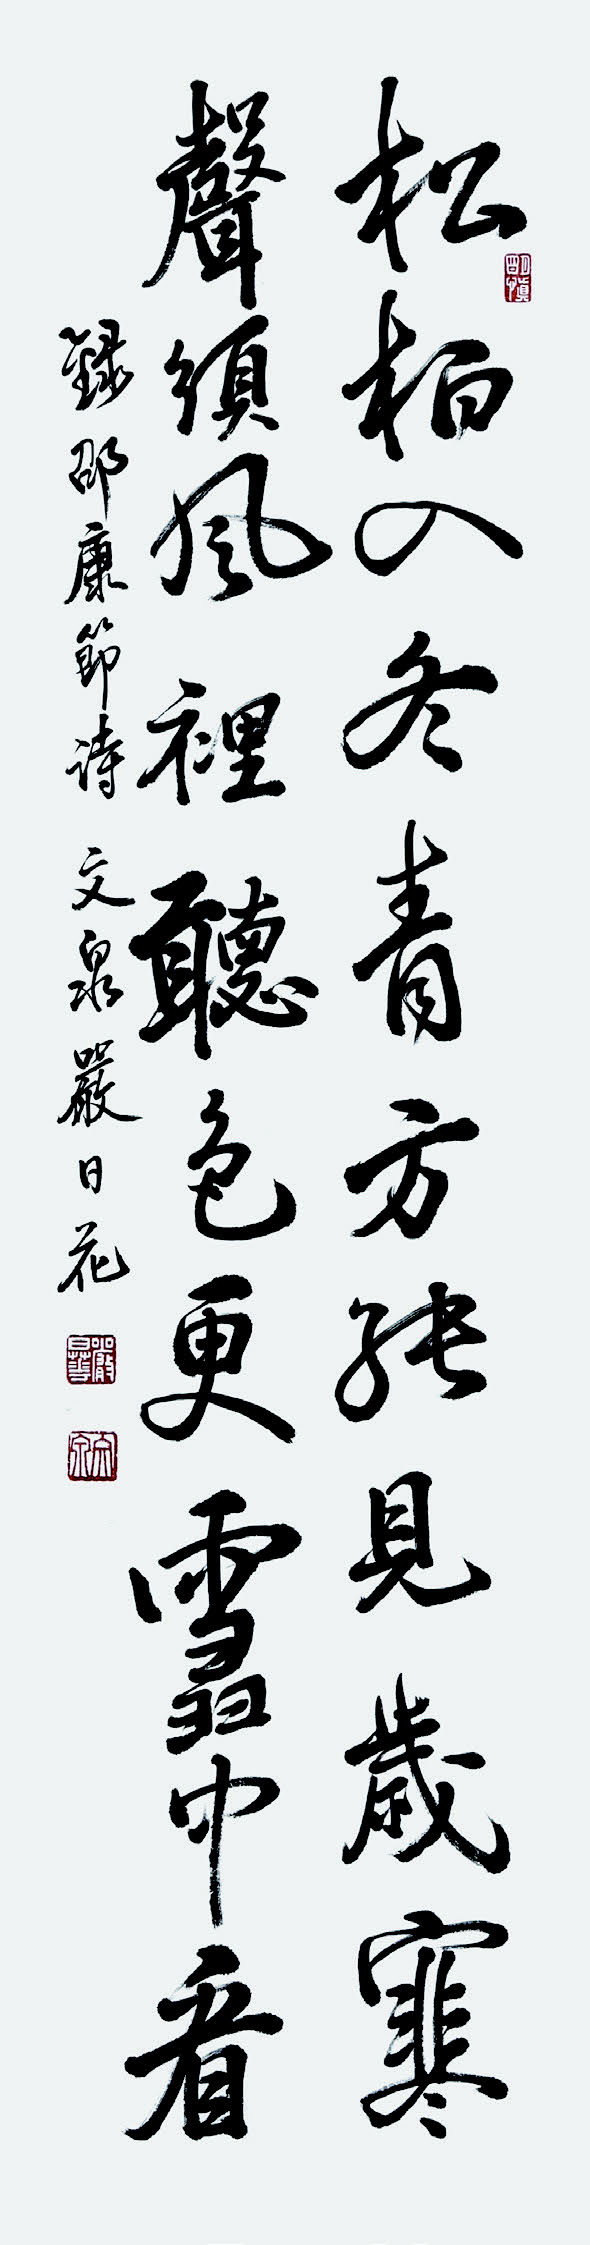 松柏入冬青方能見歲寒
聲須風裡聽色更雪中看
錄邵康節詩 文泉嚴日花